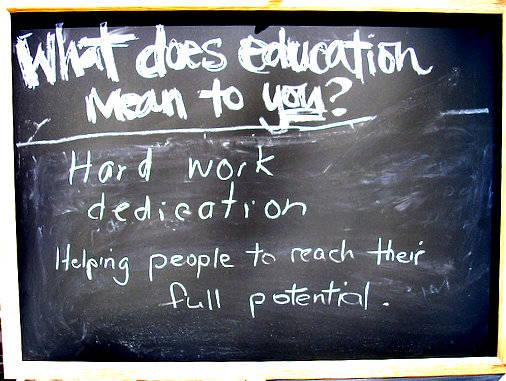 What does education
mean to you?
Hard work
dedication
Helping people to reach their
full potential.